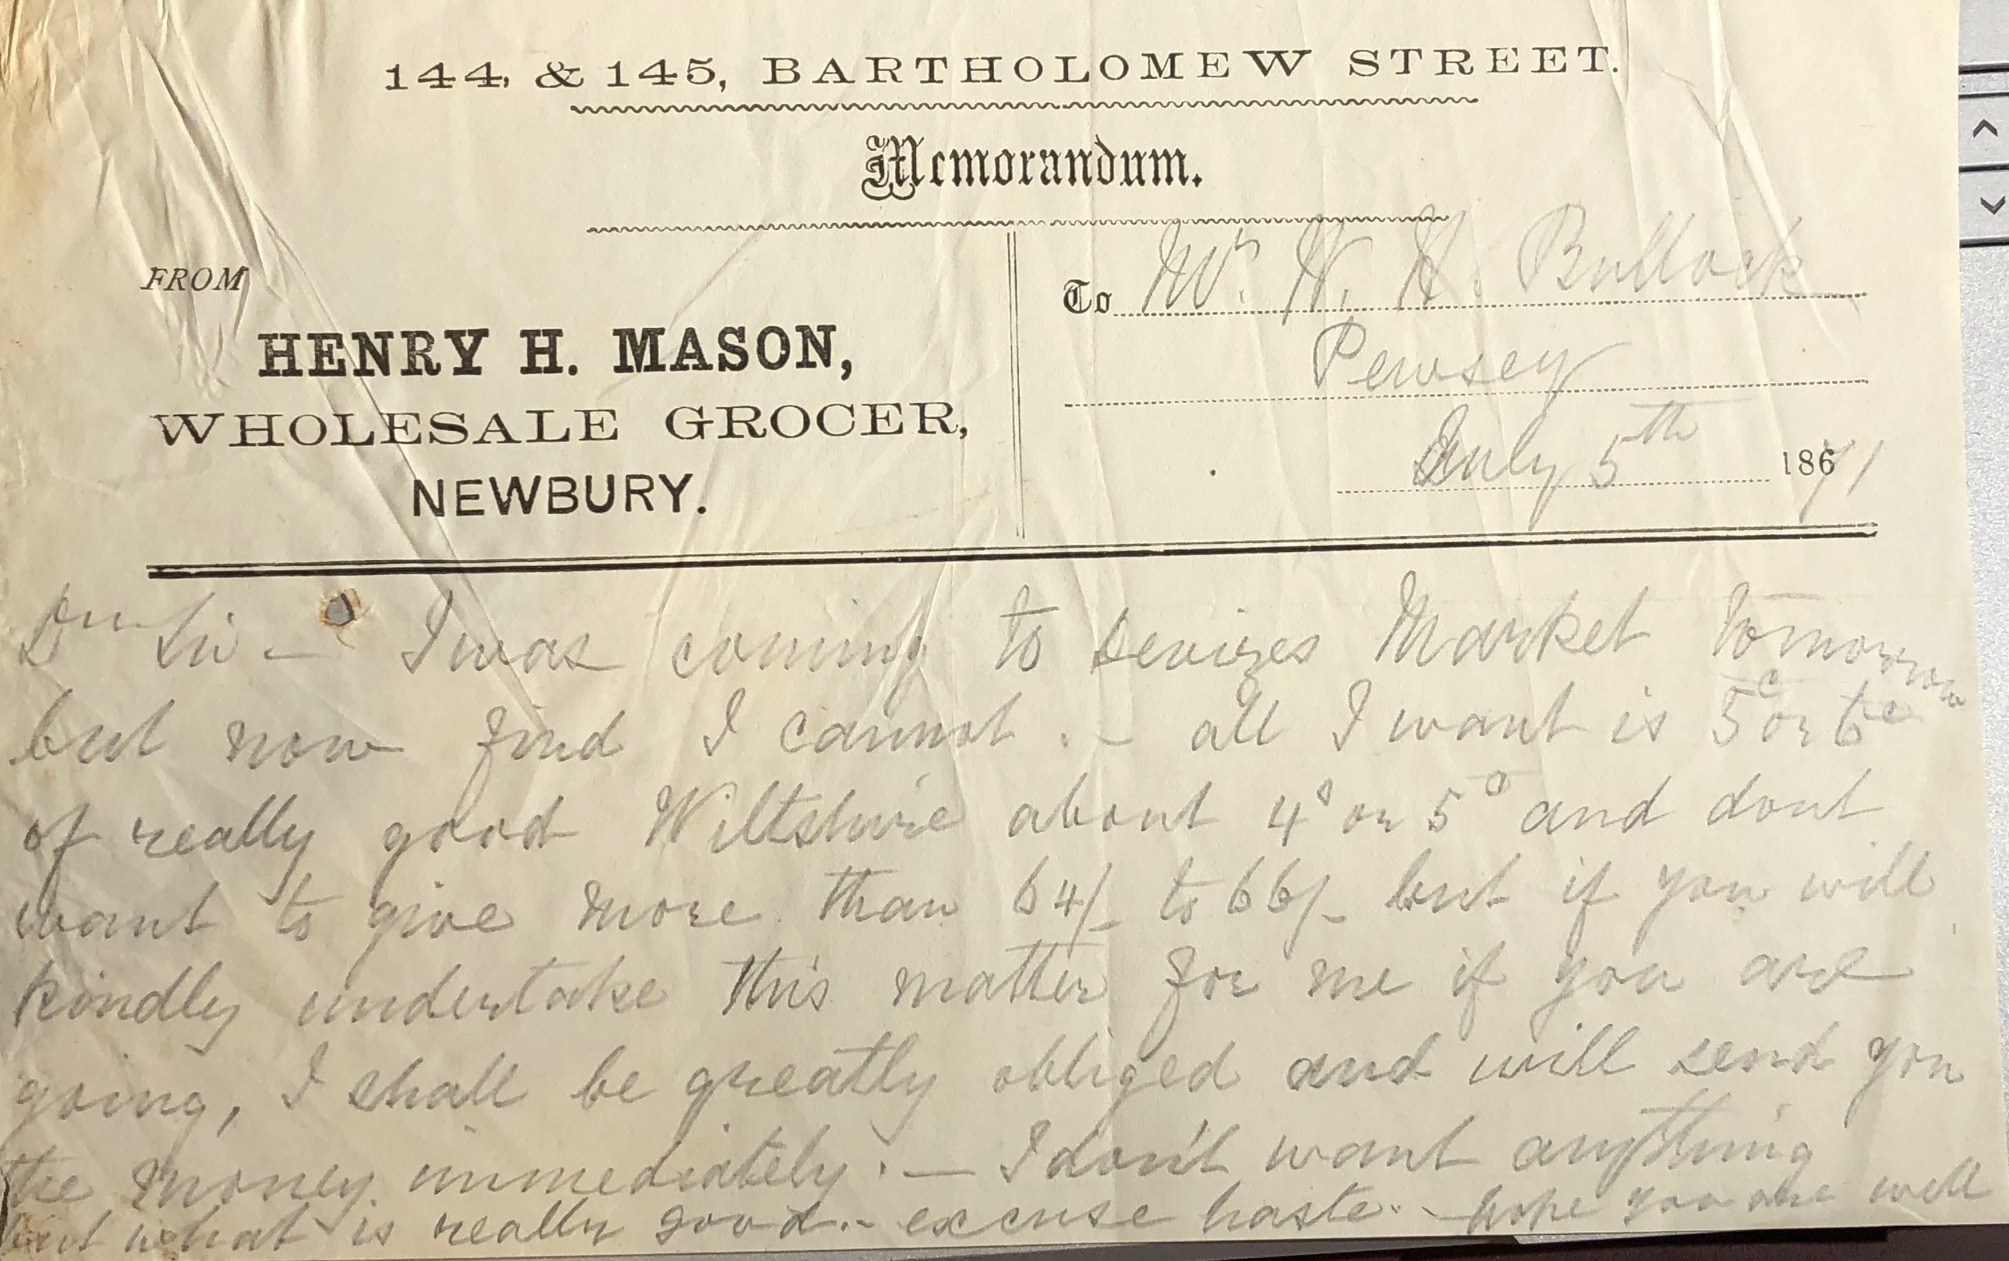 144, & 145, BARTHOLOMEW STREET.
Memorandum.
FROM
HENRY H. MASON,
WHOLESALE GROCER,
NEWBURY.
To Mr. H. H. Bullock
Pewsey
July 5th 1871
Dr Sir — I was coming to Devizes Market tomorrow
but now find I cannot. — all I want is 5c or 6c
of really good Wiltshire about 4s or 5s and dont
want to give more than 64/- to 66/- but if you will
kindly undertake this matter for me if you are
going, I shall be greatly obliged and will send you
the money immediately. — I don't want anything
but what is really good. - excuse haste. - hope you are well